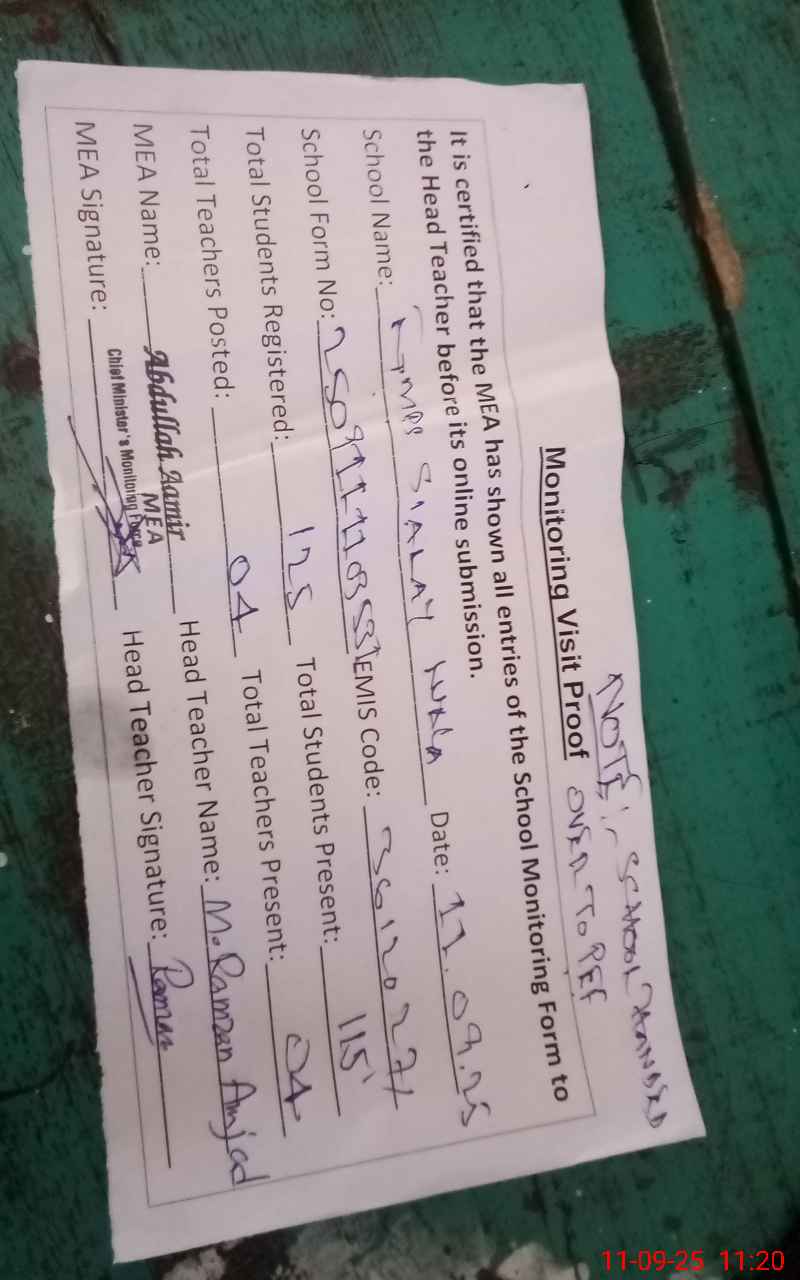 NOTE:- SCHOOL HANDED
OVER TO PEF
Monitoring Visit Proof
It is certified that the MEA has shown all entries of the School Monitoring Form to
the Head Teacher before its online submission.
School Name: GMPS SIALAY WALA Date: 11.09.25
School Form No: EMIS Code:
Total Students Registered: 125 Total Students Present: 115
Total Teachers Posted: 04 Total Teachers Present: 04
MEA Name: Abdullah Aamir Head Teacher Name: M. Raman Amjad
MEA
Chief Minister's Monitoring Force
MEA Signature: Head Teacher Signature: Raman
11-09-25 11:20